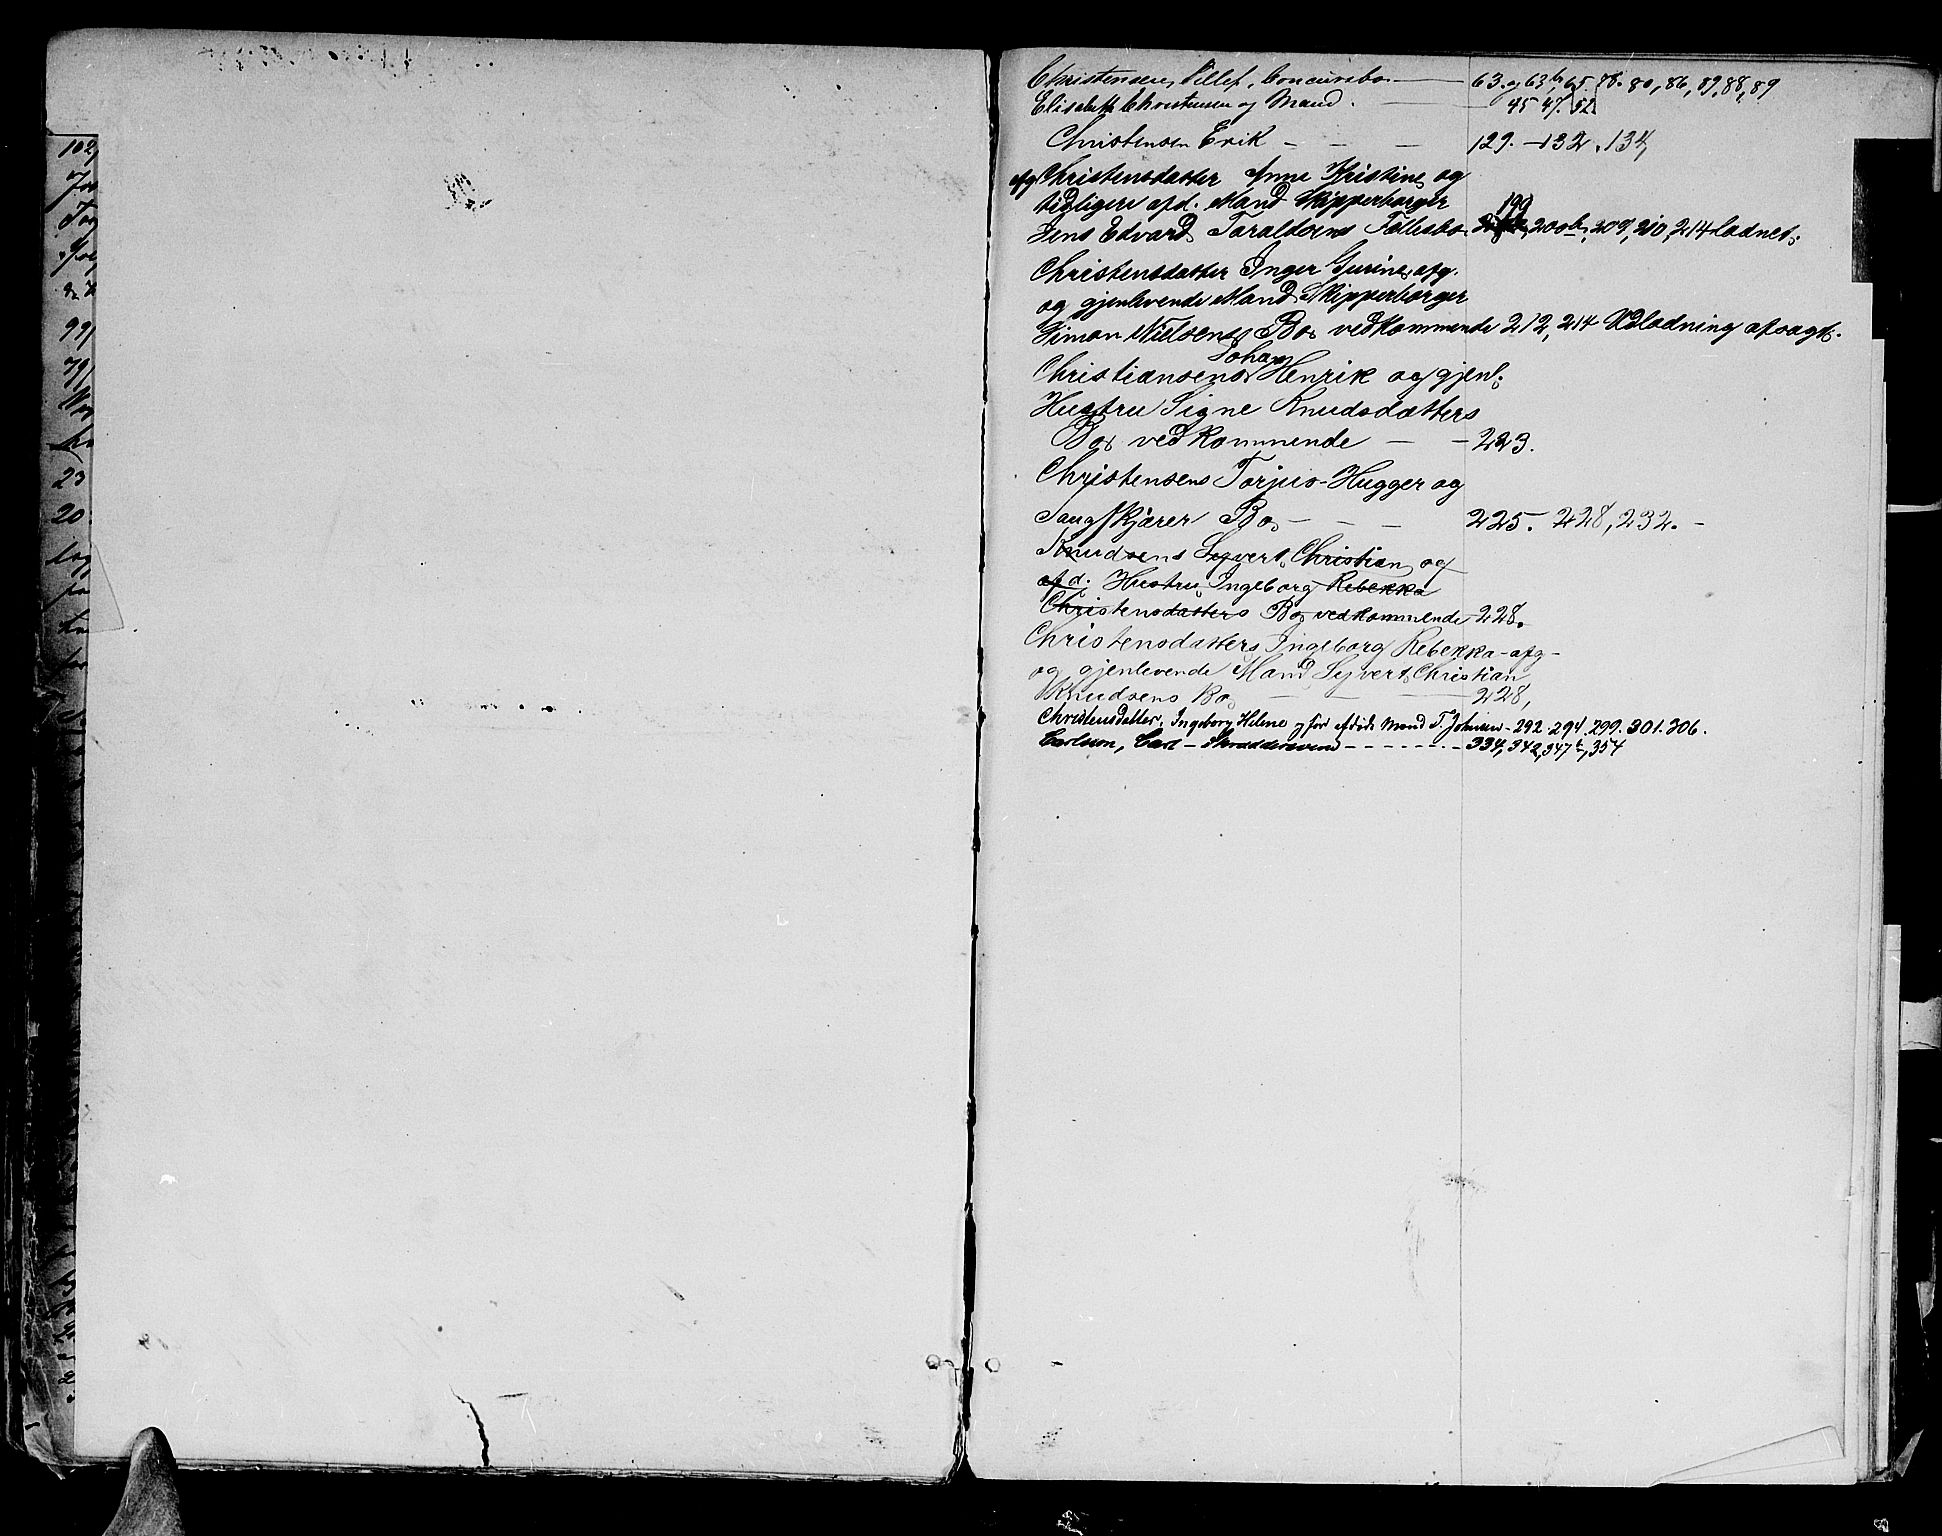 102
99
79
23
20
Christensens, Tellef, Concursbo. — 63. og 63b, 65. 78. 80, 86, 87, 88, 89
Elisabeth Christensen og Mand. — 45 47. 52
Christensen Erik — — — 129. — 132. 134,
afg Christensdatter Anne Kristine, og
tidligere afd. Mand Skipperborger 199
Jens Edvard Taraldsens Fællesbo 200b, 209, 210, 214 ladnet.
Christensdatter Inger Gurine, afg.
og gjenlevende Mand Skipperborger
Simon Nielsens Bo vedkommende 212, 214 Udlodning afsagt.
Johan
Christiansens Henrik og gjenl.
Hustru Signe Knudsdatters
Bo vedkommende — — 223.
Christensens Torjus - Hugger og
Saugskjærer Bo — — — 225. 228, 232. —
Knudsens Syvert Christian og
afd. Hustru Ingeborg Rebekka
Christensdatters Bo vedkommende 228.
Christensdatters Ingeborg Rebekka - afg -
og gjenlevende Mand Syvert Christian
Knudsens Bo — — — 228,
Christensdatter, Ingeborg Helene og før afdøde Mand T. Johnsen - 292. 294. 299. 301. 306.
Carlsson, Carl - Skræddersvend - - - - - - - 334, 342, 347b, 354